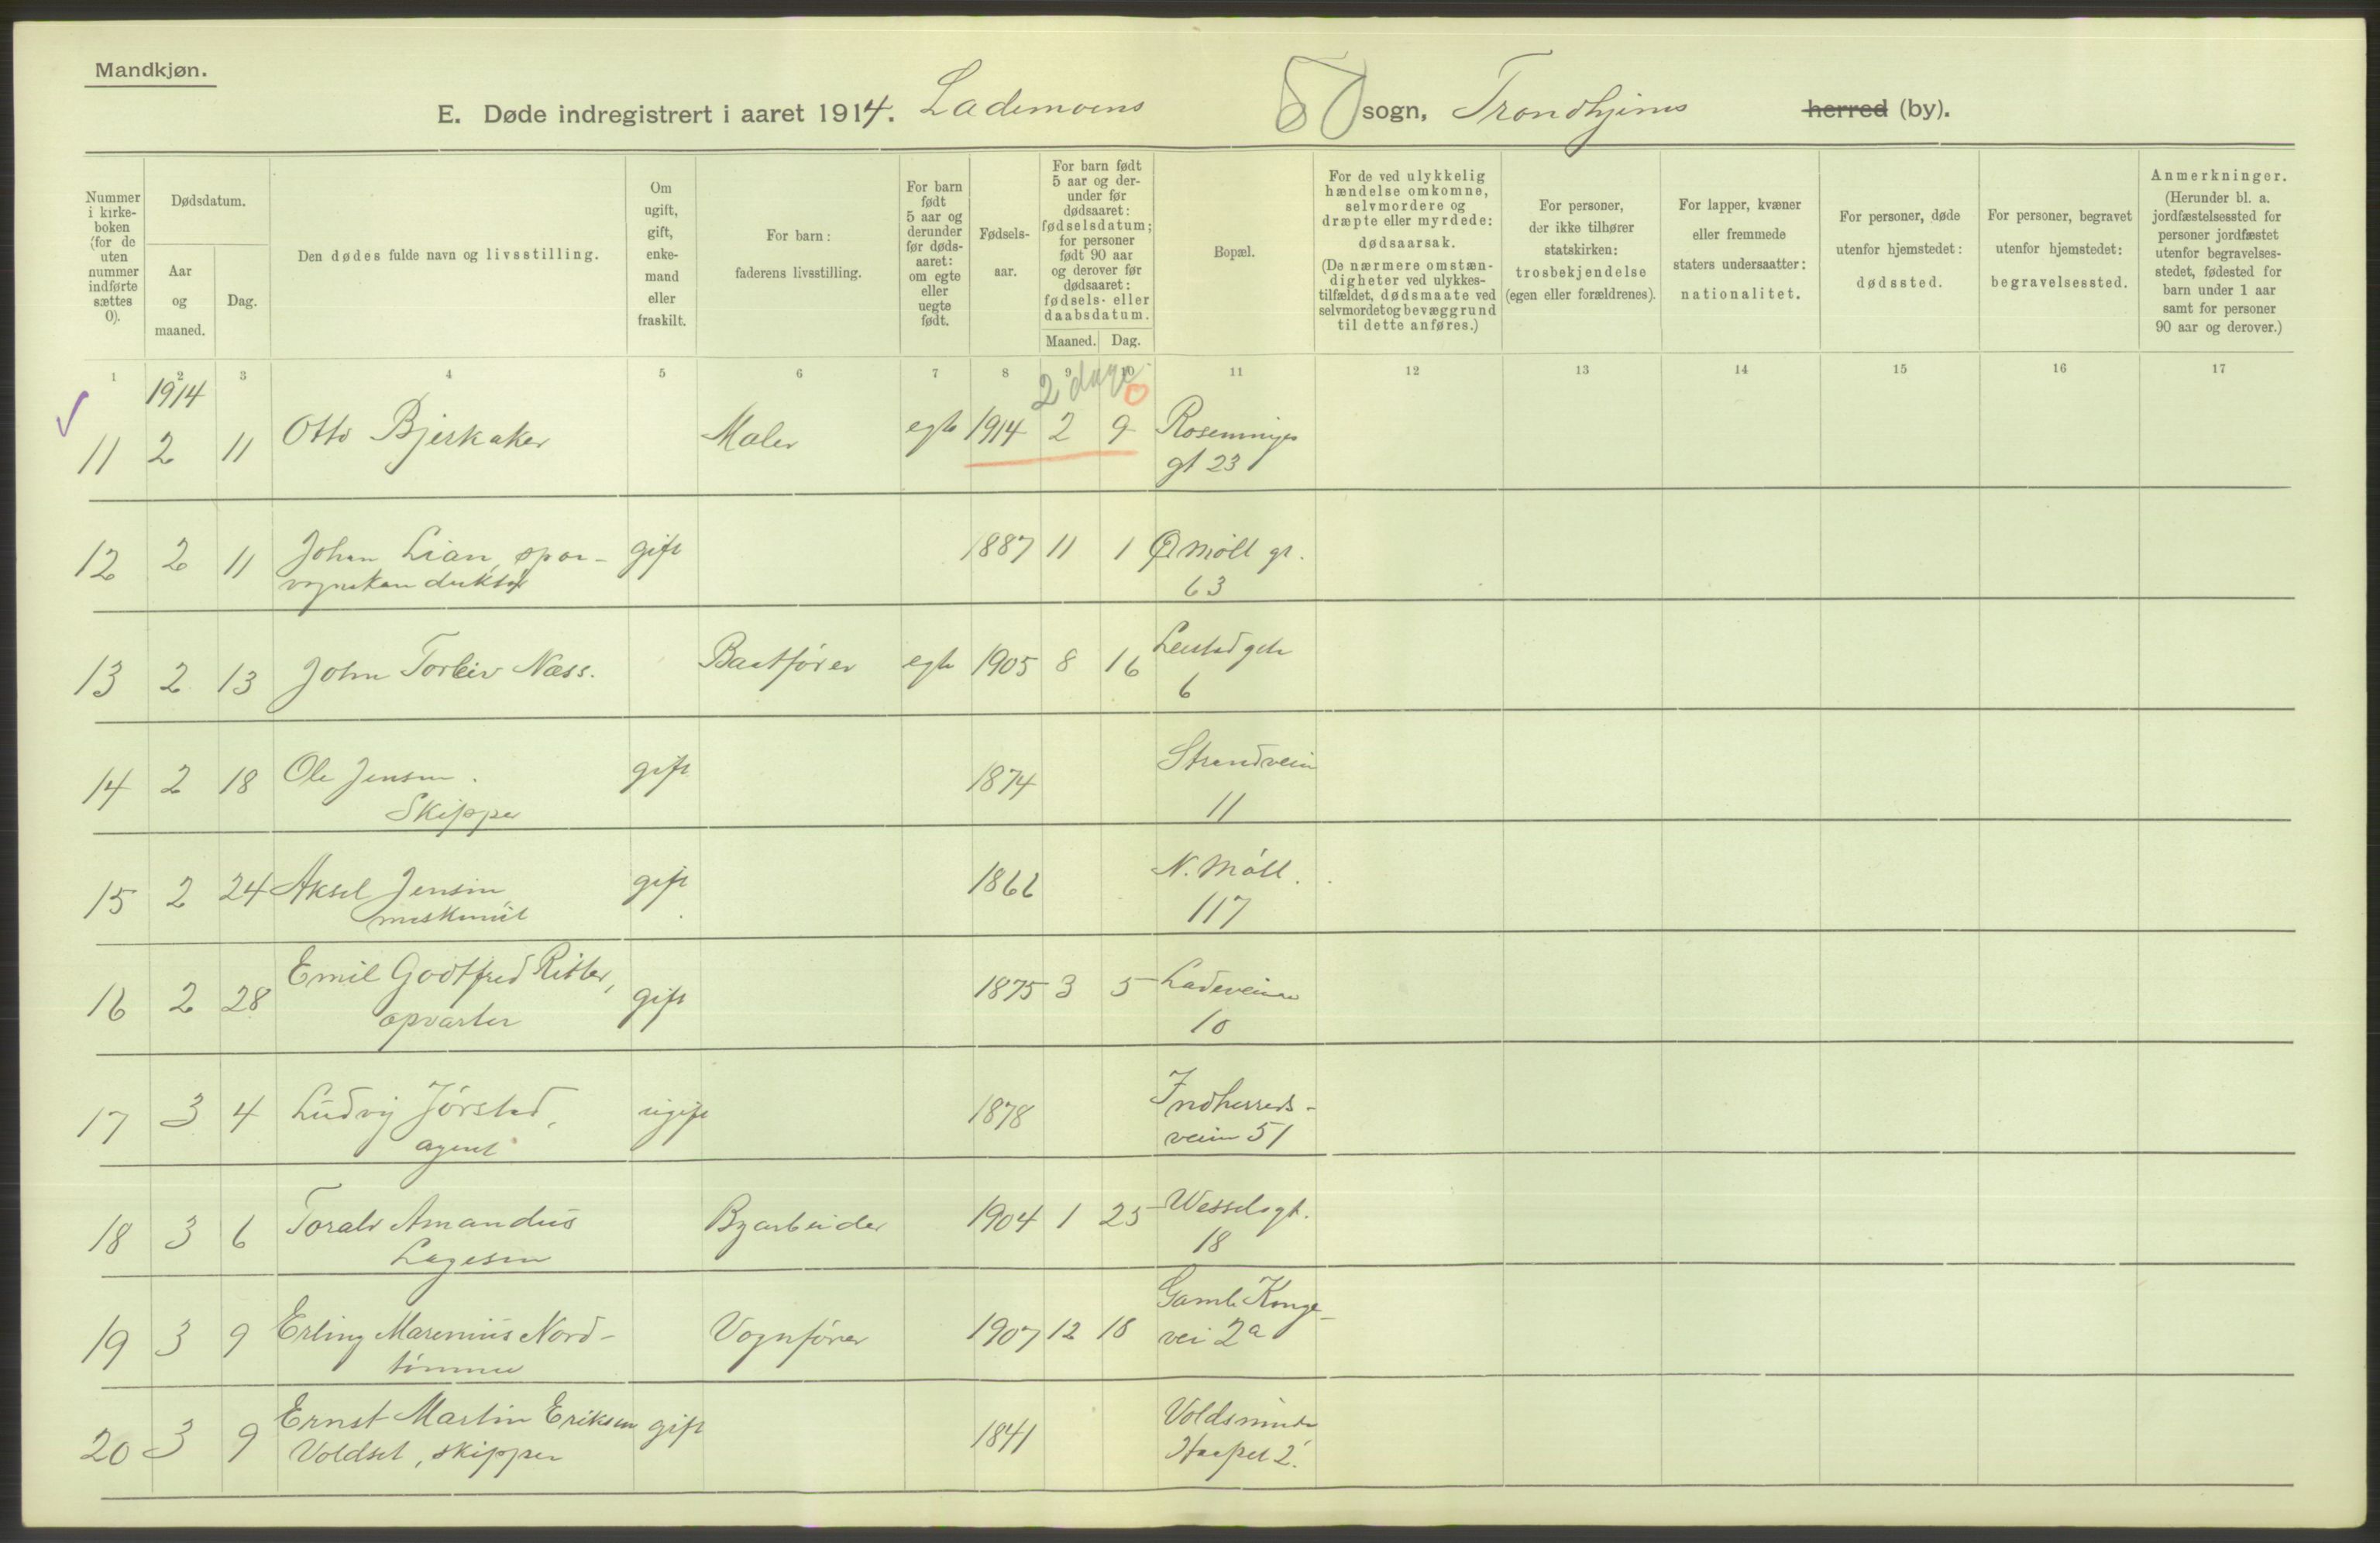 Mandkjøn.
E. Døde indregistrert i aaret 1914. Lademoens sogn, Trondhjems herred (by).
Nummer i kirke-boken (for de uten nummer indførte sættes 0).
Dødsdatum.
Aar og maaned.
Dag.
Den dødes fulde navn og livsstilling.
Om ugift, gift, enke-mand eller fraskilt.
For barn: faderens livsstilling.
For barn født 5 aar og derunder før døds-aaret: om egte eller uegte født.
Fødsels-aar.
For barn født 5 aar og der-under før dødsaaret: fødselsdatum; for personer født 90 aar og derover før dødsaaret: fødsels- eller daabsdatum.
Maaned. Dag.
Bopæl.
For de ved ulykkelig hændelse omkomne, selvmordere og dræpte eller myrdede: dødsaarsak. (De nærmere omstæn-digheter ved ulykkes-tilfældet, dødsmaate ved selvmordet og bevæggrund til dette anføres.)
For personer, der ikke tilhører statskirken: trosbekjendelse (egen eller forældrenes).
For lapper, kvæner eller fremmede staters undersaatter: nationalitet.
For personer, døde utenfor hjemstedet: dødssted.
For personer, begravet utenfor hjemstedet: begravelsessted.
Anmerkninger. (Herunder bl. a. jordfæstelsessted for personer jordfæstet utenfor begravelses-stedet, fødested for barn under 1 aar samt for personer 90 aar og derover.)
1 2 3 4 5 6 7 8 9 10 11 12 13 14 15 16 17
1914 2 dage 0
11 2 11 Otto Bjerkaker Maler egte 1914 2 9
gt 23
12 2 11 Johan Lian, spor- gift 1887 11 1 Ø Möll gt.
vognskonduktør 63
13 2 13 John Torleiv Næss. Baatfører egte 1905 8 16
6
14 2 18 Ole Jensen. gift 1874 Strandveien
Skipper 11
15 2 24 Aksel Jensen, gift 1866 N. Möll.
maskinist 117
16 2 28 Emil Godtfred Ritter, gift 1875 3 5 Ladeveien
opvarter 10
17 3 4 Ludvig Jörstad, ugift 1878 Indherreds-
agent veien 51
18 3 6 Toralv Amandus Byarbeider 1904 1 25 Wesselsgt.
Lagesen 18
19 3 9 Erling Marenius Nord- Vognfører 1907 12 18 Gamle Konge-
tömme vei 2a
20 3 9 Ernst Martin Eriksen gift 1841 Voldsminde
Voldset, skipper 2.